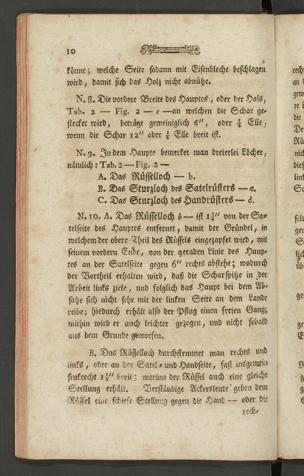 10
könne; welche Seite sodann mit Eisenbleche beschlagen
wird, damit sich das Holz nicht abnütze.
N. 8. Die vordere Breite des Hauptes, oder der Hals,
Tab. 2 — Fig. 2 — e —an welchen die Schar ge-
steckt wird, beträgt gemeiniglich 6", oder ¼ Elle,
wenn die Schar 12" oder ½ Elle breit ist.
N. 9. In dem Haupte bemerket man dreierlei Löcher,
nämlich: Tab. 2 — Fig. 2 —
A. Das Rüsselloch — b.
B. Das Sturzloch des Satelrüsters — c.
C. Das Sturzloch des Handrüsters — d.
N. 10. A. Das Rüsselloch b — ist 1½" von der Sa-
telseite des Hauptes entfernet, damit der Gründel, in
welchem der obere Theil des Rüssels eingezapfet wird, mit
seinem vordern Ende, von der geraden Linie des Haup-
tes an der Satelseite gegen 6" rechts abstehe; wodurch
der Vortheil erhalten wird, daß die Scharspitze in der
Arbeit links ziele, und folglich das Haupt bei dem Ab-
satze sich nicht sehr mit der linken Seite an dem Lande
reibe; hiedurch erhält also der Pflug einen freien Gang;
mithin wird er auch leichter gezogen, und nicht sobald
aus dem Grunde geworfen.
B. Das Rüsselloch durchstemmet man rechts und
links, oder an der Satel- und Handseite, fast insgemein
senkrecht 1½" breit; worinn der Rüssel auch eine gleiche
Stellung erhält. Verständige Ackersleute geben dem
Rüssel eine schiefe Stellung gegen die Hand — oder die
rech-